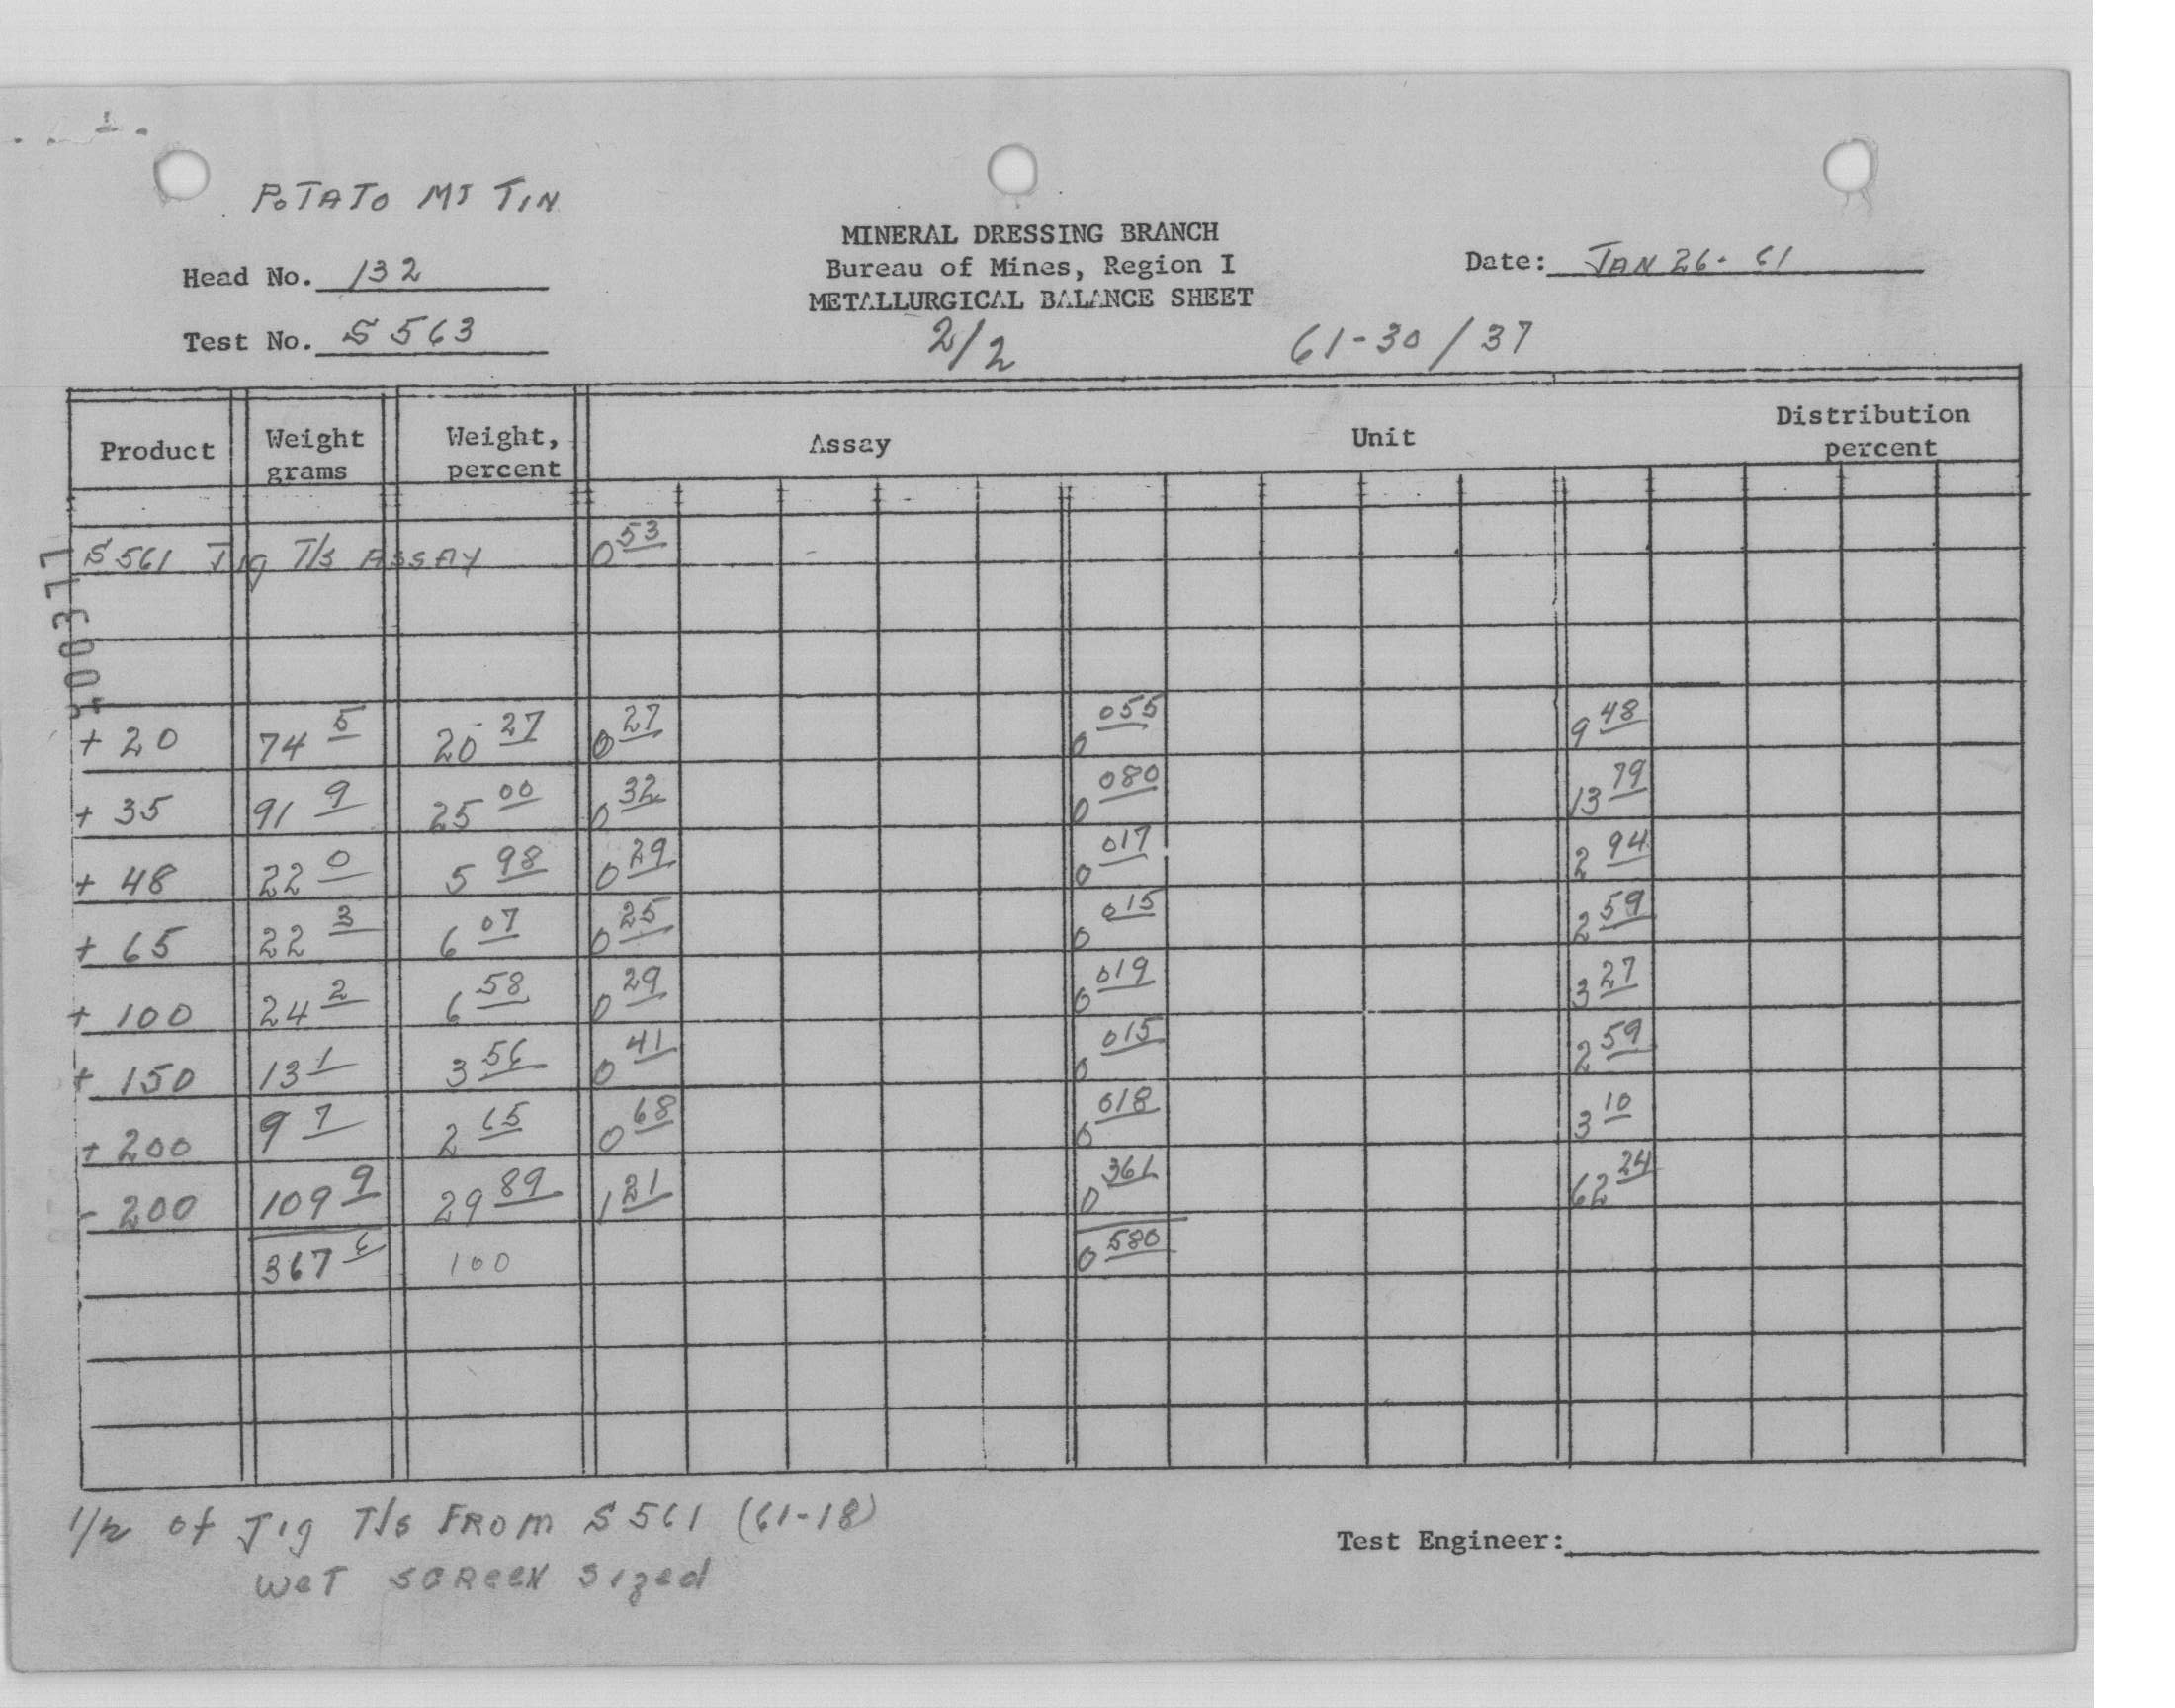 POTATO MT TIN
MINERAL DRESSING BRANCH
Bureau of Mines, Region I
METALLURGICAL BALANCE SHEET
Head No. 132
Date: JAN 26-61
Test No. S 563
2/2 61-30/37
Product Weight grams Weight, percent Assay Unit Distribution percent
S 561 Jig T/s ASSAY 0.53
+ 20 74.5 20.27 0.27 0.055 9.48
+ 35 91.9 25.00 0.32 0.080 13.79
+ 48 22.0 5.98 0.29 0.017 2.94
+ 65 22.3 6.07 0.25 0.015 2.59
+ 100 24.2 6.58 0.29 0.019 3.27
+ 150 13.1 3.56 0.41 0.015 2.59
+ 200 9.7 2.65 0.68 0.018 3.10
- 200 109.9 29.89 1.21 0.361 62.24
367.6 100 0.580
1/2 of Jig T/s FROM S 561 (61-18)
WeT SCReeN Sized
Test Engineer: